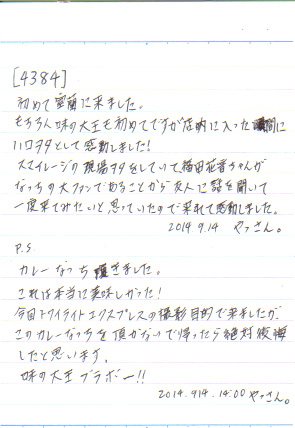 [4384]
初めて室蘭に来ました。
もちろん味の大王も初めてですが店内に入った瞬間に
ハロヲタとして感動しました!
スマイレージの現場ヲタをしていて福田花音ちゃんが
なっちの大ファンであることから友人に話を聞いて
一度来てみたいと思っていたので来れて感動しました。
2014.9.14 やっさん。
P.S
カレーなっち頂きました。
これは本当に美味しかった!
今回トワイライトエクスプレスの撮影目的で来ましたが、
このカレーなっちを頂かないで帰ったら絶対後悔
したと思います。
味の大王ブラボー!!
2014.9.14.14:00 やっさん。